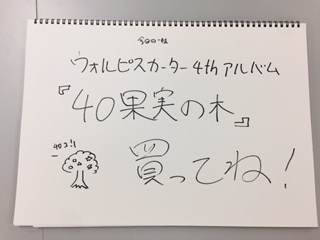 今日の一枚
ウォルピスカーター4thアルバム
『40果実の木』
40コ!!
買ってね!